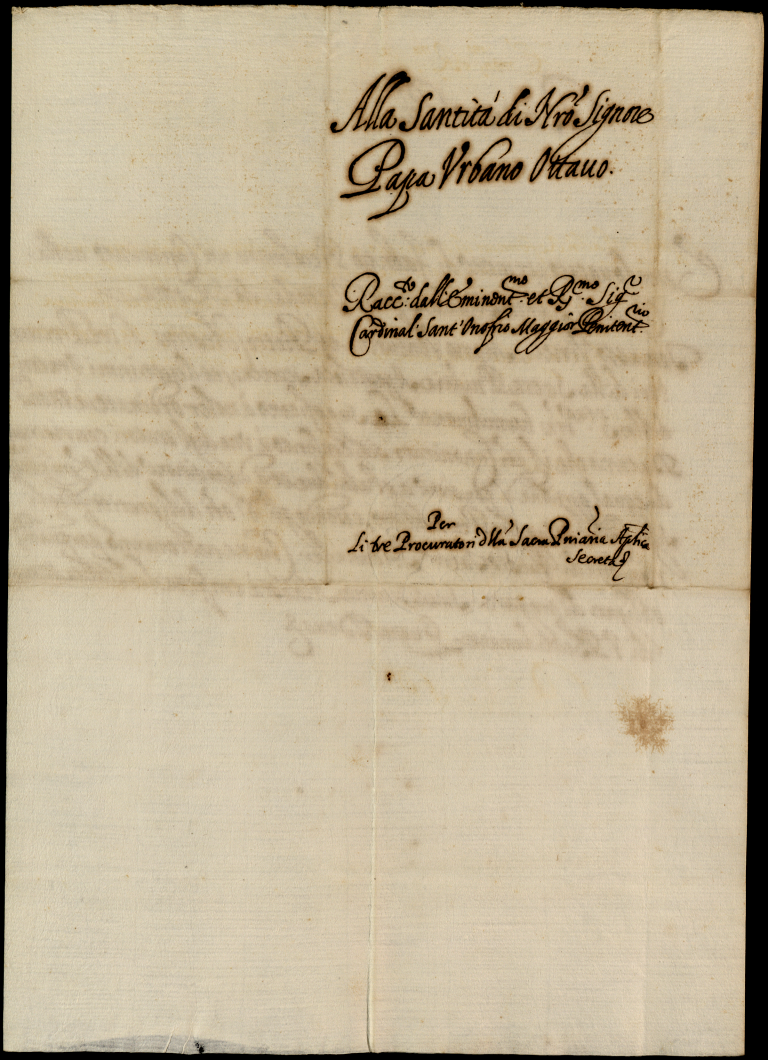 Alla Santità di Nrõ Signore
Papa Vrbano Ottauo.
Racc.to dall'Eminent.mo et R.mo Sig.r
Cardinal Sant'Onofrio Maggior Penitent.rio
Per
Li tre Procuratori d'lla Sacra Pniãria Aplica
Secreta